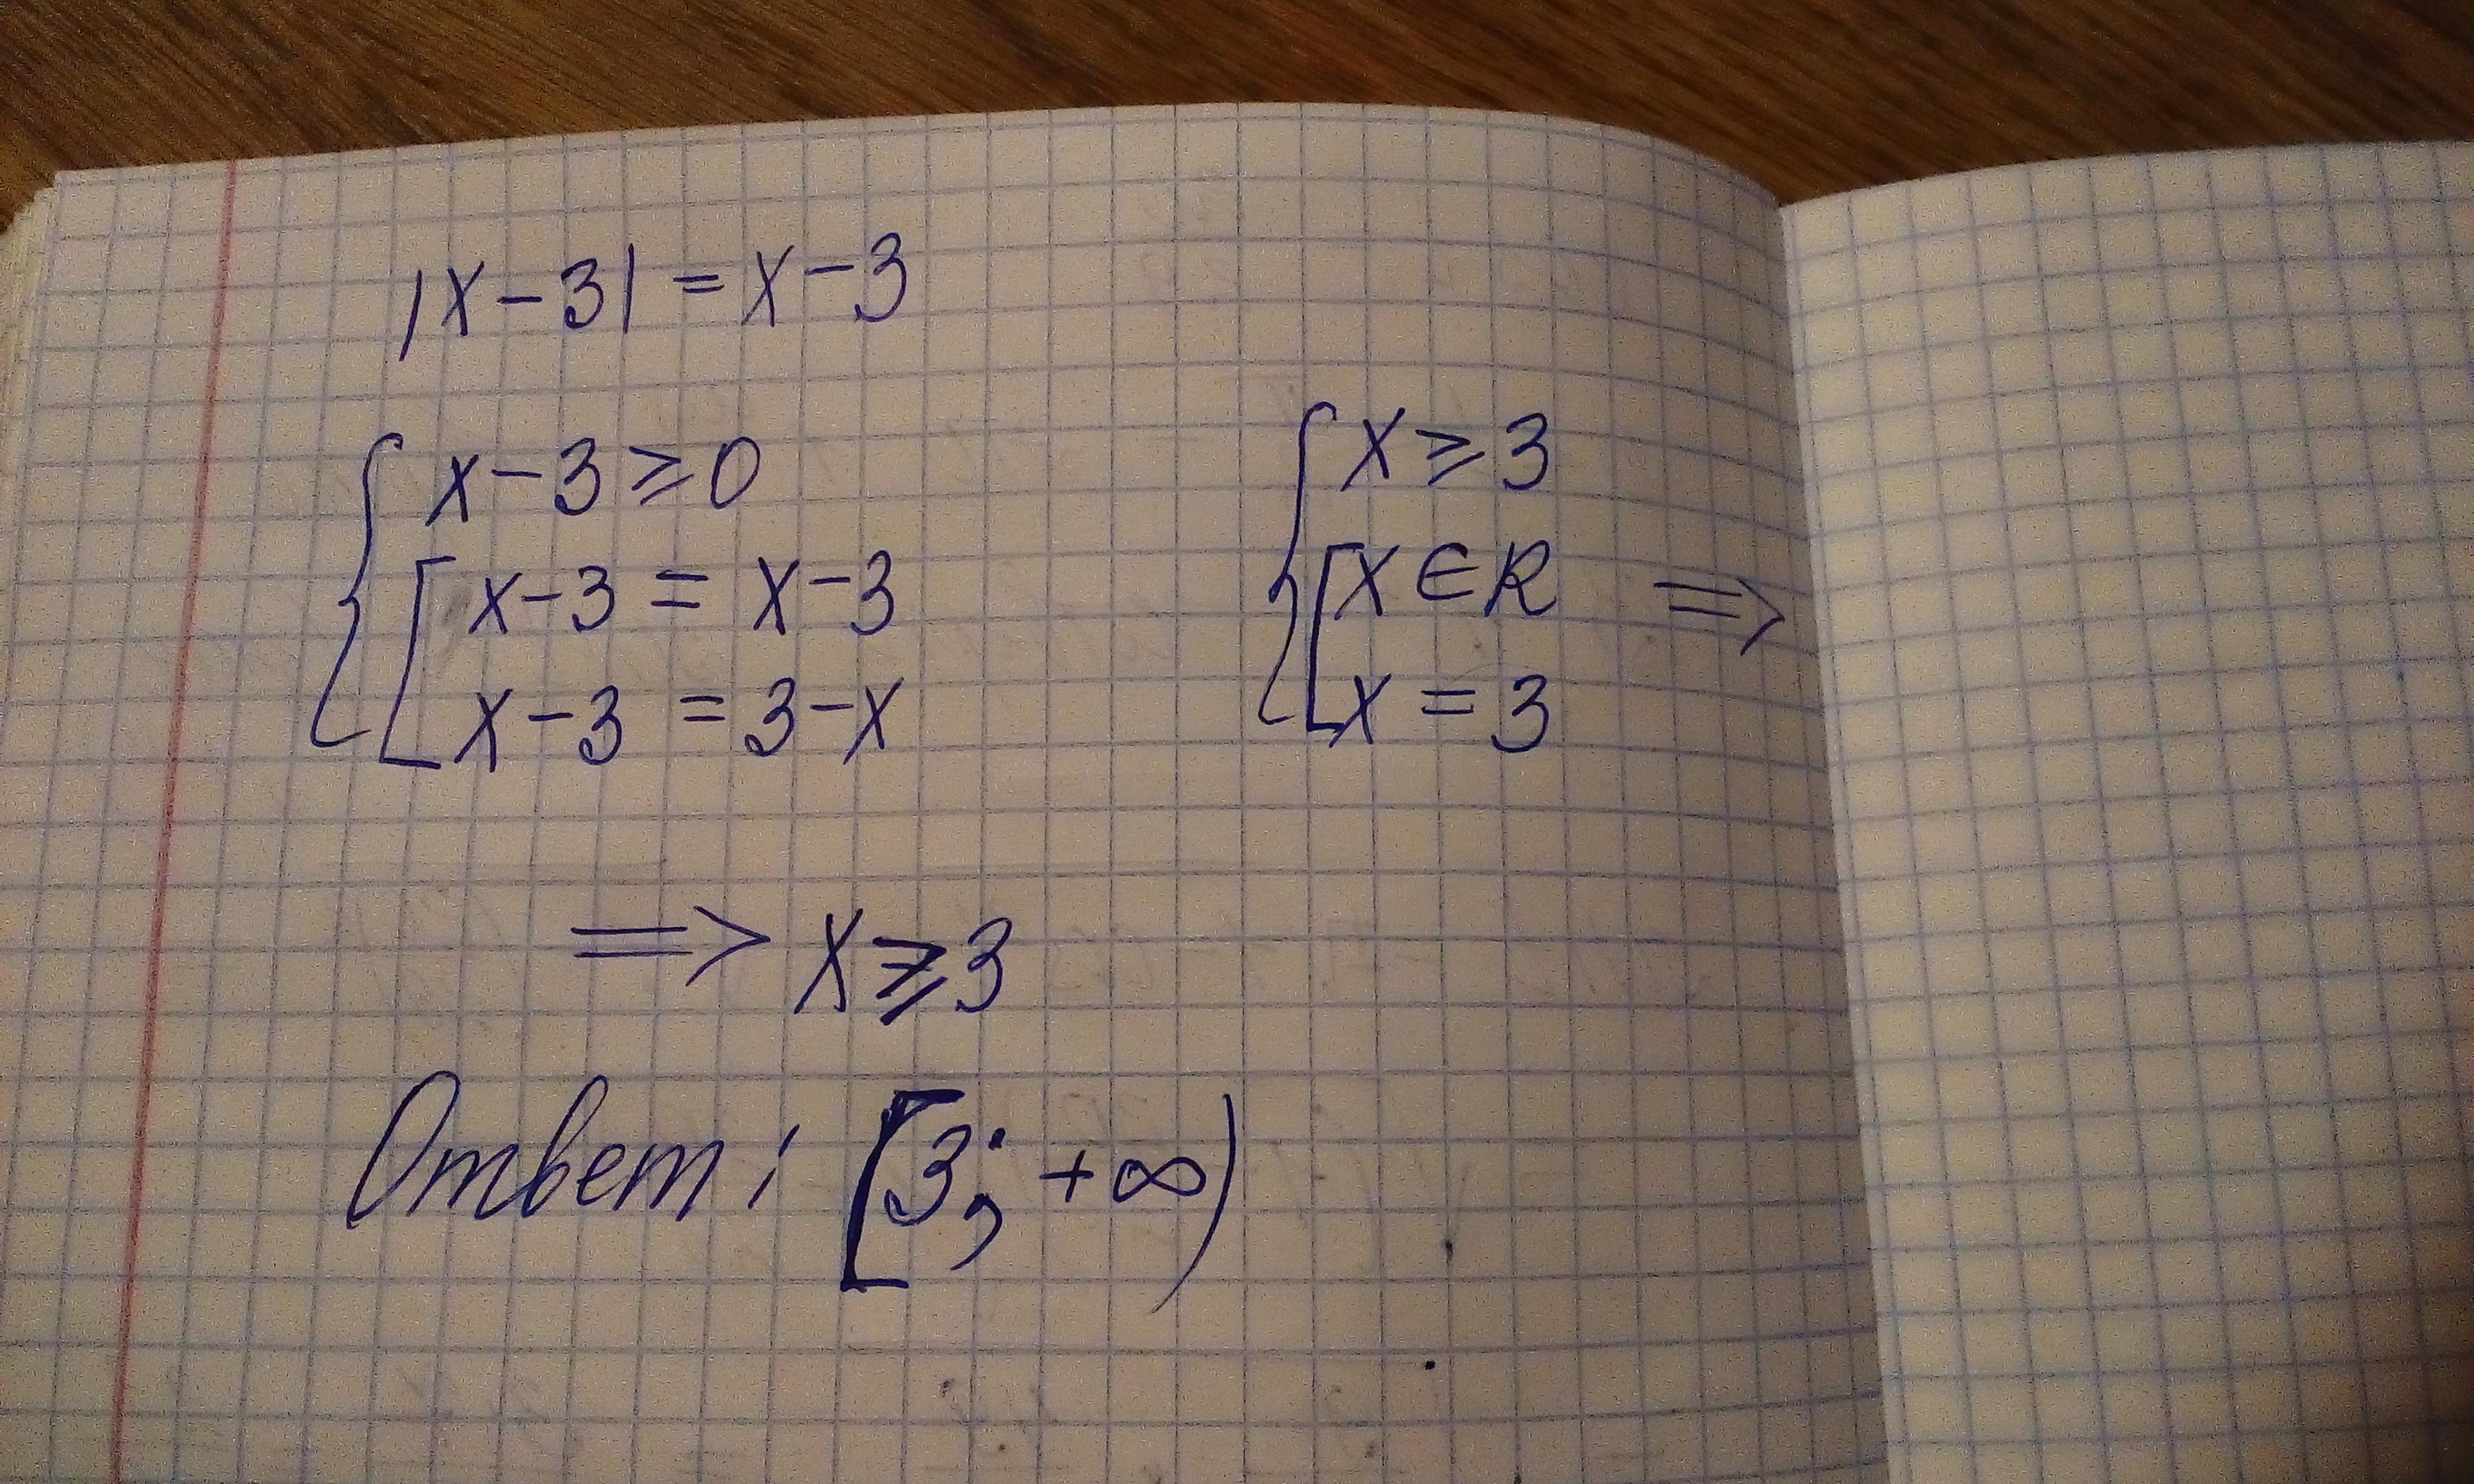 |x-3| = x-3
{ x-3 ⩾ 0
[ x-3 = x-3
x-3 = 3-x
{ x ⩾ 3
[ x ∈ R ⇒
x = 3
⇒ x ⩾ 3
Ответ: [3; +∞)